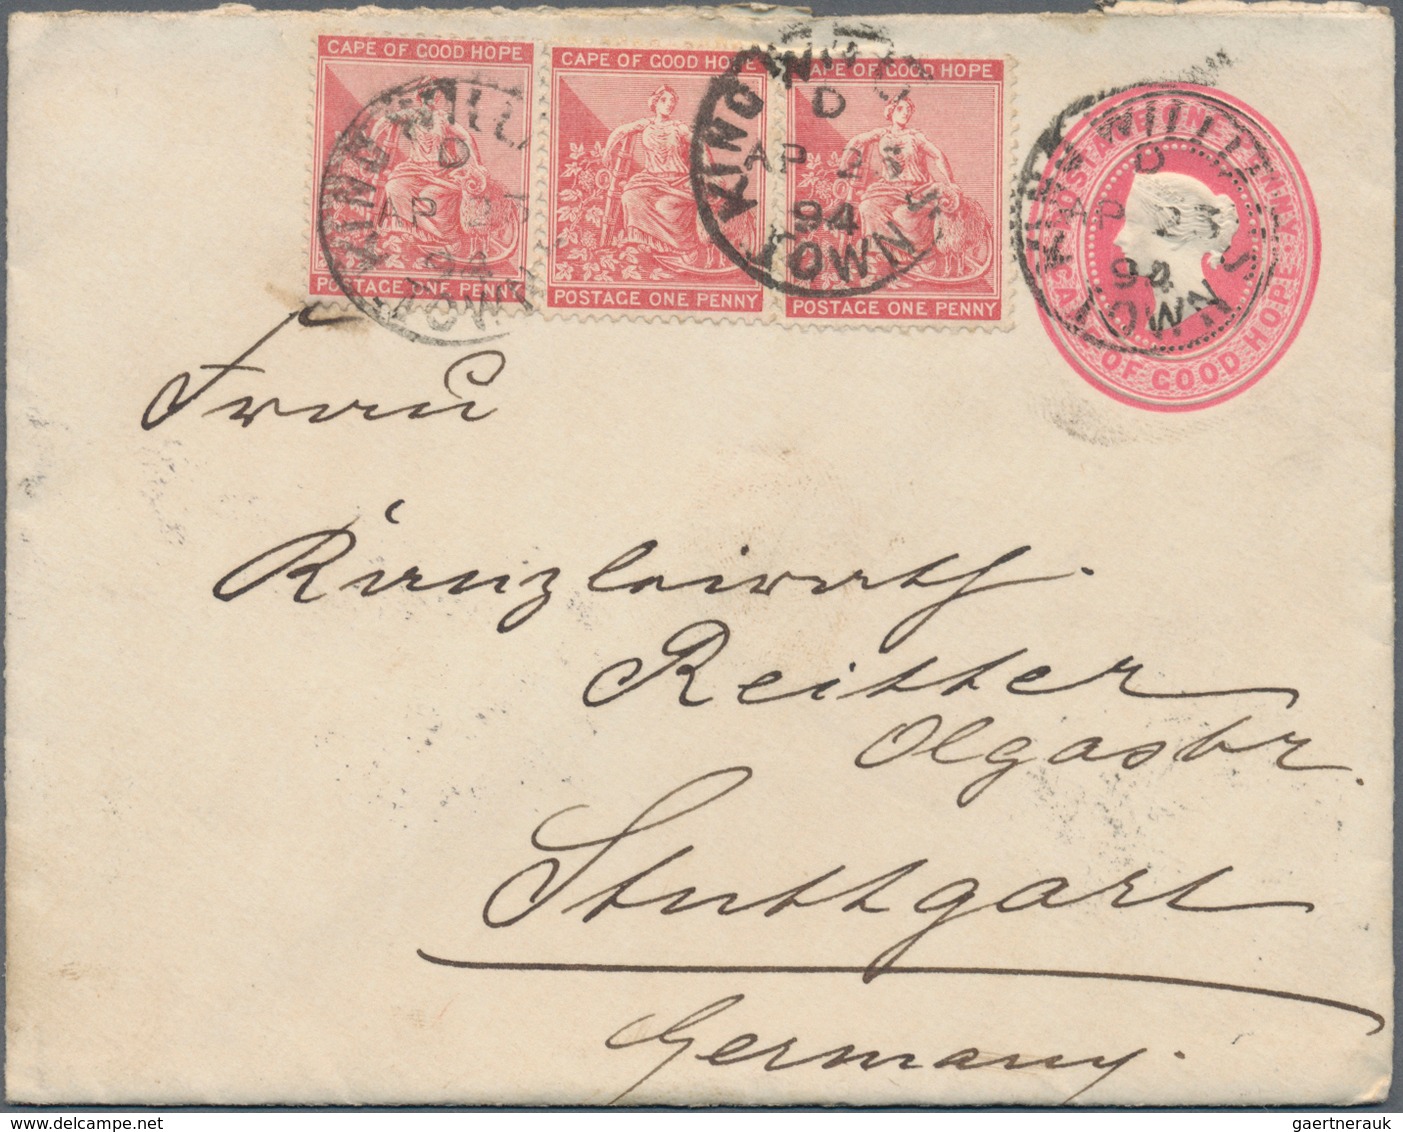 CAPE OF GOOD HOPE
POSTAGE ONE PENNY
CAPE OF GOOD HOPE
POSTAGE ONE PENNY
CAPE OF GOOD HOPE
POSTAGE ONE PENNY
KING WILL
D
AP 25
94
TOWN
KING WILLI
D
AP 25
94
TOWN
KING WILLI
D
AP 25
94
S TOWN
POSTAGE ONE PENNY
CAPE OF GOOD HOPE
Frau
Kanzleirath
Reitter
Olgastr.
Stuttgart
Germany.
gaertnerauk